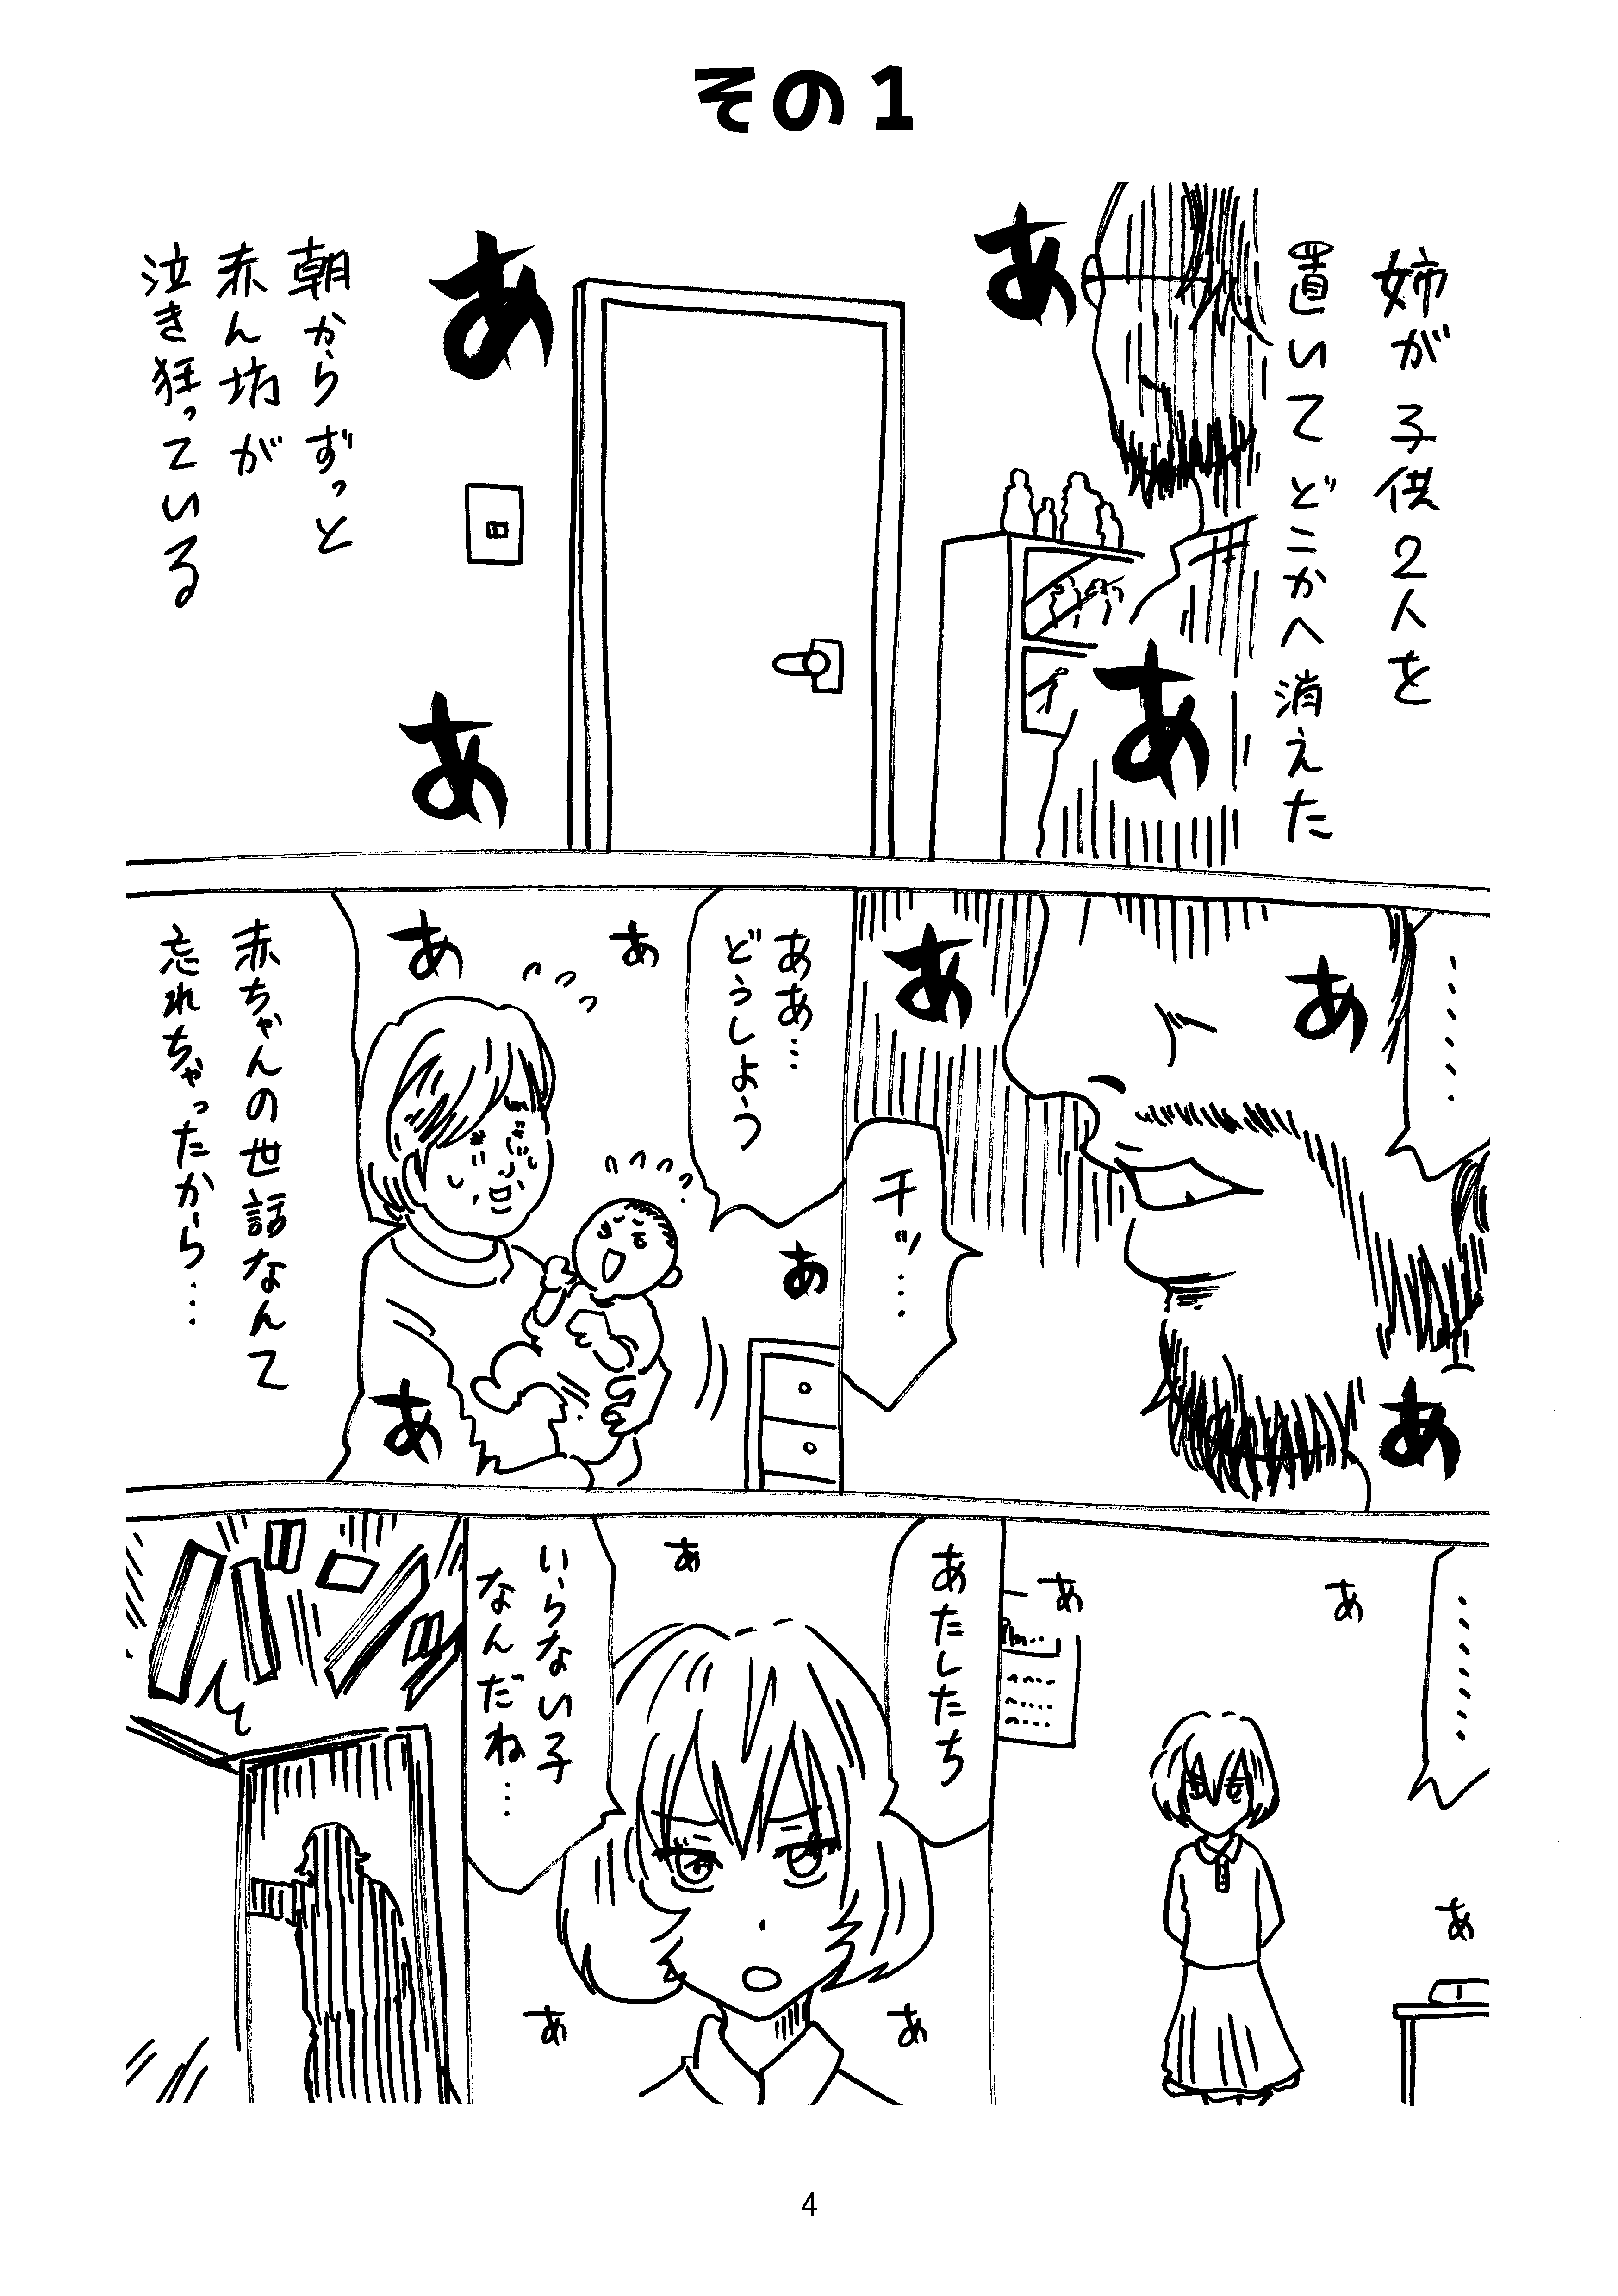 その1
姉が子供2人を
置いてどこかへ消えた
あ
あ
あ
あ
朝からずっと
赤ん坊が
泣き狂っている
......
あ
あ
あ
チッ…
ああ…
どうしよう
あ
あ
あ
あ
赤ちゃんの世話なんて
忘れちゃったから…
.......
あ
あ
あ
あたしたち
あ
あ
あ
いらない子
なんだね…
4